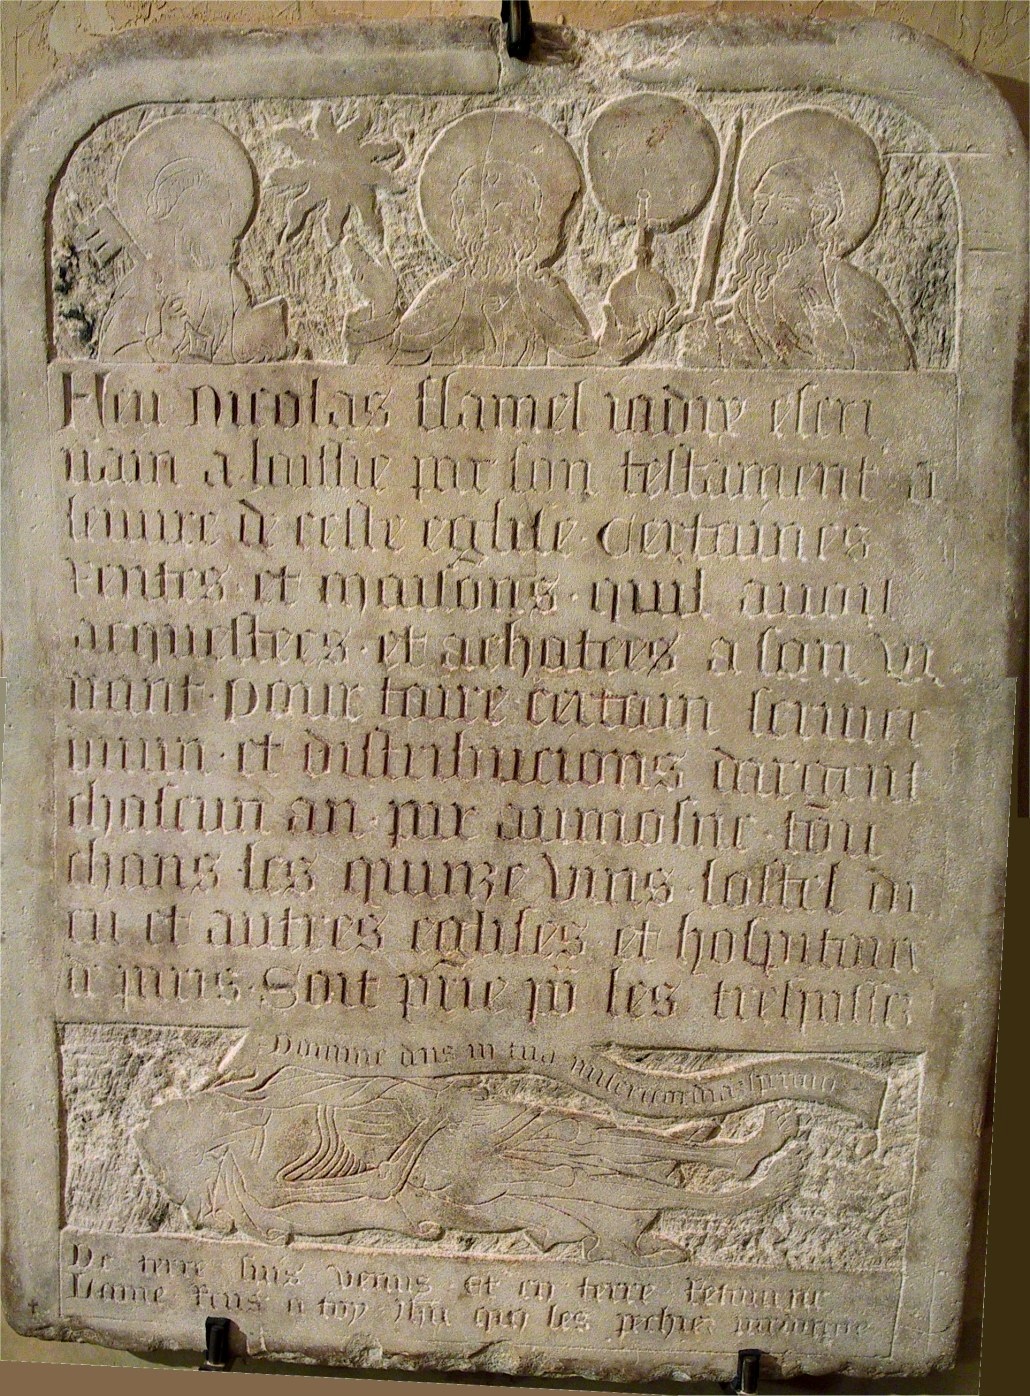 Feu Nicolas flamel iadix escri
uain a laissie par son testament a
leuure de ceste eglise · Certaines
rentes · et maisons · quil auoit
acquestees · et achatees a son vi ·
uant · pour faire certain seruice
diuin · et distribucions dargent
chascun an · par aumosne · tou
chans · les quinze vins · lostel di
eu et autres eglises · et hospitaux
a paris · Soit prie po les trespassez
Domine deus in tua misericordia speraui
De terre suis venus · Et en terre Retourne
Lame Rens a toy · ihu qui les pechiez pardonne